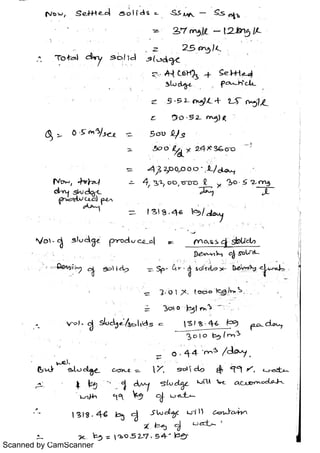 Now, Settled solids = SSin - SSo/p
= 37 mg/l - 12 mg/l
= 25 mg/l
∴ Total dry solid sludge
= Al(OH)3 + Settled
sludge particle
= 5.52 mg/l + 25 mg/l
= 30.52 mg/l
Q = 0.5 m3/sec = 500 l/s
= 500 l/s × 24×3600
= 43200,000 l/day
Now, total = 4,32,00,000 l/day × 30.52 mg/l
dry sludge
produced per
day
= 1318.46 kg/day
Vol. of sludge produced = mass of solids / Density of solid
Density of solids = Sp. Gr. of solids × Density of water
= 3.01 × 1000 kg/m3
= 3010 kg/m3
∴ Vol. of sludge/solids = 1318.46 kg / 3010 kg/m3 per day
= 0.44 m3/day
But wet sludge cons = 1% solid & 99% water
∴ 1 kg of dry sludge will be accomodate
with 99 kg of water
1318.46 kg of sludge will contain
x kg of water
∴ x kg = 130527.54 kg
Scanned by CamScanner